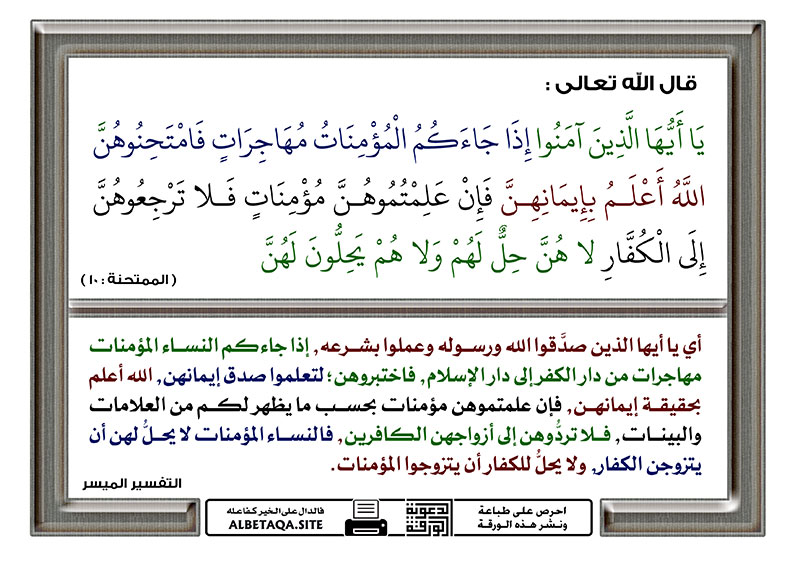 قال الله تعالى :
يَا أَيُّهَا الَّذِينَ آمَنُوا إِذَا جَاءَكُمُ الْمُؤْمِنَاتُ مُهَاجِرَاتٍ فَامْتَحِنُوهُنَّ
اللَّهُ أَعْلَمُ بِإِيمَانِهِنَّ فَإِنْ عَلِمْتُمُوهُنَّ مُؤْمِنَاتٍ فَلا تَرْجِعُوهُنَّ
إِلَى الْكُفَّارِ لا هُنَّ حِلٌّ لَهُمْ وَلا هُمْ يَحِلُّونَ لَهُنَّ
( الممتحنة : ١٠ )
أي يا أيها الذين صدَّقوا الله ورسوله وعملوا بشرعه, إذا جاءكم النساء المؤمنات
مهاجرات من دار الكفر إلى دار الإسلام, فاختبروهن؛ لتعلموا صدق إيمانهن, الله أعلم
بحقيقة إيمانهن, فإن علمتموهن مؤمنات بحسب ما يظهر لكم من العلامات
والبينات, فلا تردُّوهن إلى أزواجهن الكافرين, فالنساء المؤمنات لا يحلُّ لهن أن
يتزوجن الكفار, ولا يحلُّ للكفار أن يتزوجوا المؤمنات.
التفسير الميسر
احرص على طباعة
ونشر هذه الورقة
الورقة
الدعوية
فالدال على الخير كفاعله
ALBETAQA.SITE